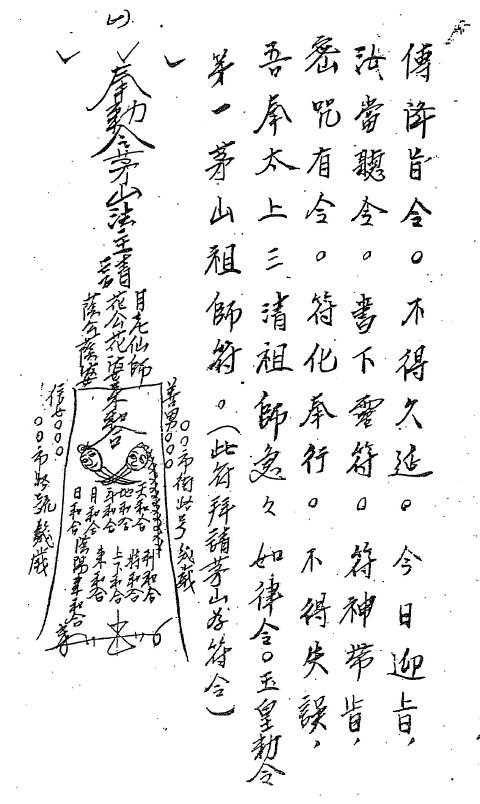 傳諱旨令。不得久延。今日迎旨,
汝當聽令。書下靈符。符神帶旨,
密咒有令。符化奉行。不得失誤,
吾奉太上三清祖師急々如律令。玉皇勅令
第一茅山祖師符。(此符拜請茅山為符令)
奉勅令茅山法主
月老仙師
花公花婆來和合
蔭公蔭婆
善男○○○
○○市街路号幾歲
信女○○○
○○市路號幾歲
天和合
地和合
年和合
月和合
日和合
和合
時和合
上下和合
東和合
陰陽來和合